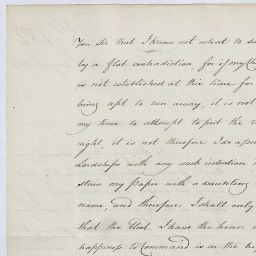 You Sir that I know not what to
by a flat contradiction for if my
is not established at this time for
being apt to run away, it is not
my time to attempt to put the
right, it is not therefore I do
Lordships with any such intention
stain my Paper with a
name, and therefore I shall only
that the Unit. I have the honor
happiness to Command is in the